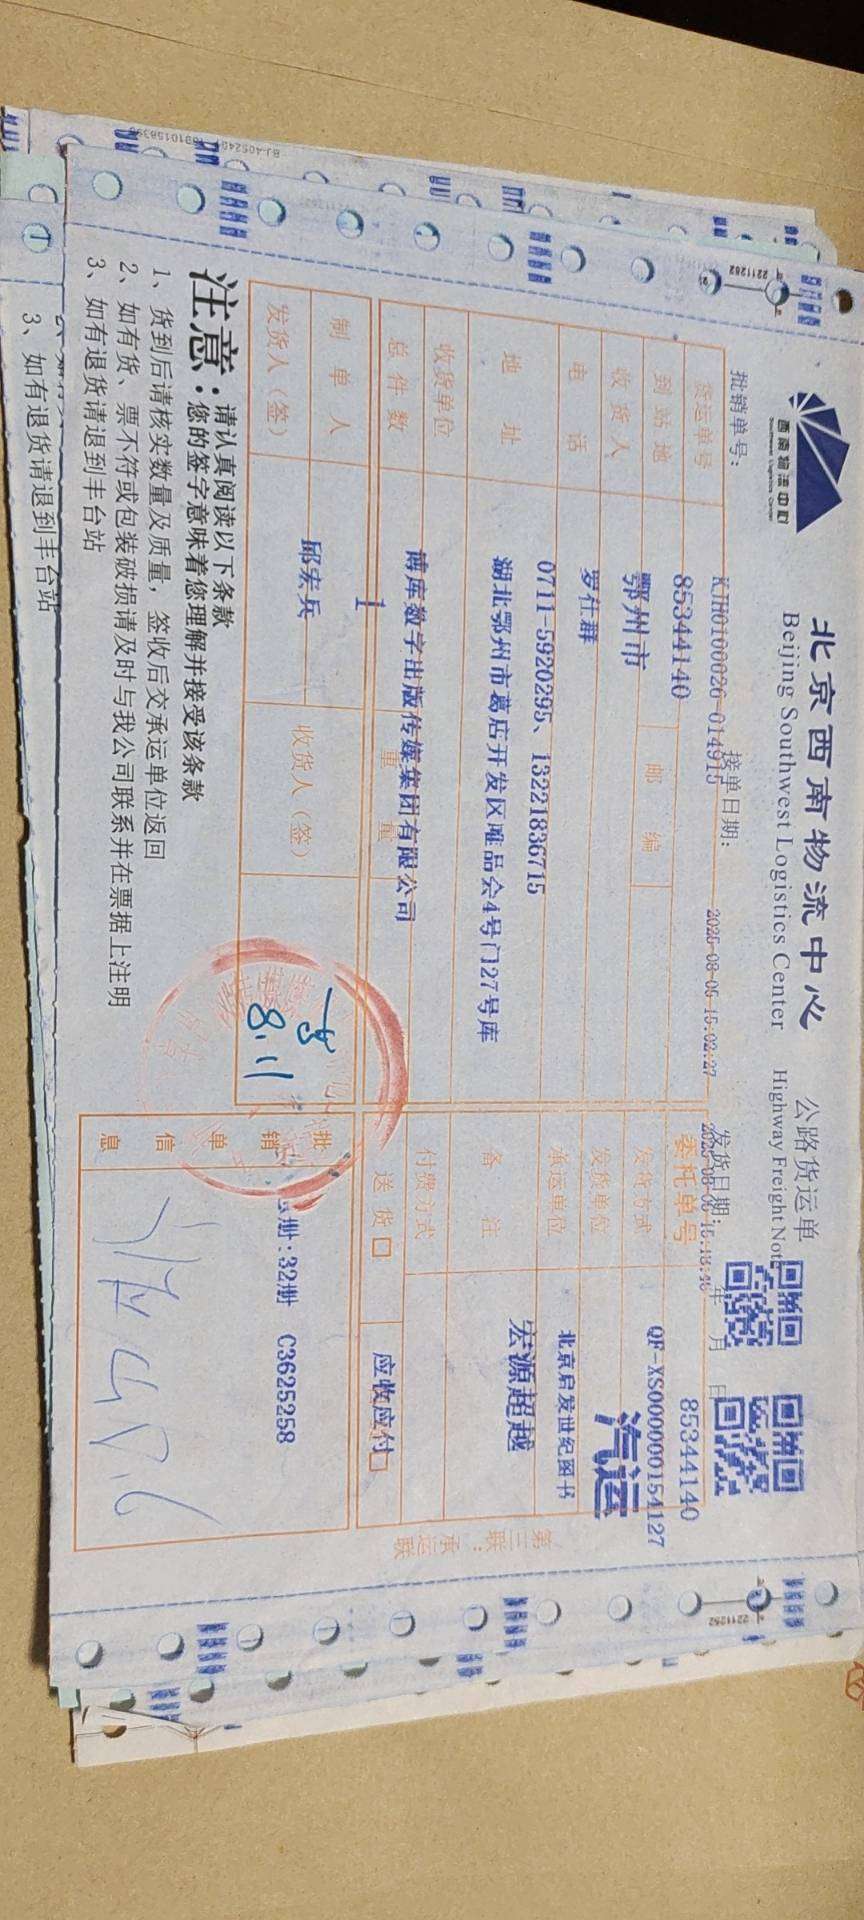 西南物流中心
Southwest Logistics Center
北京西南物流中心 公路货运单
Beijing Southwest Logistics Center Highway Freight Note
批销单号: KJH0100026-014915 接单日期: 2025-08-06 15:02:27 发货日期: 年 月 日
货运单号 85344140 委托单号 85344140
到站地 鄂州市 邮编 发货方式 QF-XS000000154127
汽运
收货人 罗仕群 发货单位 北京启发世纪图书
电话 0711-5920295、13221836715 承运单位 宏源超越
地址 湖北鄂州市葛店开发区唯品会4号门27号库 备注
收货单位 博库数字出版传媒集团有限公司 付费方式
总件数 1 重量 送货□ 应收应付□
制单人 邱宏兵 收货人(签) 8.11
发货人(签)
批销单信息 册:32册 C3625258
第三联:承运联
注意:请认真阅读以下条款
您的签字意味着您理解并接受该条款
1、货到后请核实数量及质量,签收后交承运单位返回
2、如有货、票不符或包装破损请及时与我公司联系并在票据上注明
3、如有退货请退到丰台站
3、如有退货请退到丰台站
2211252